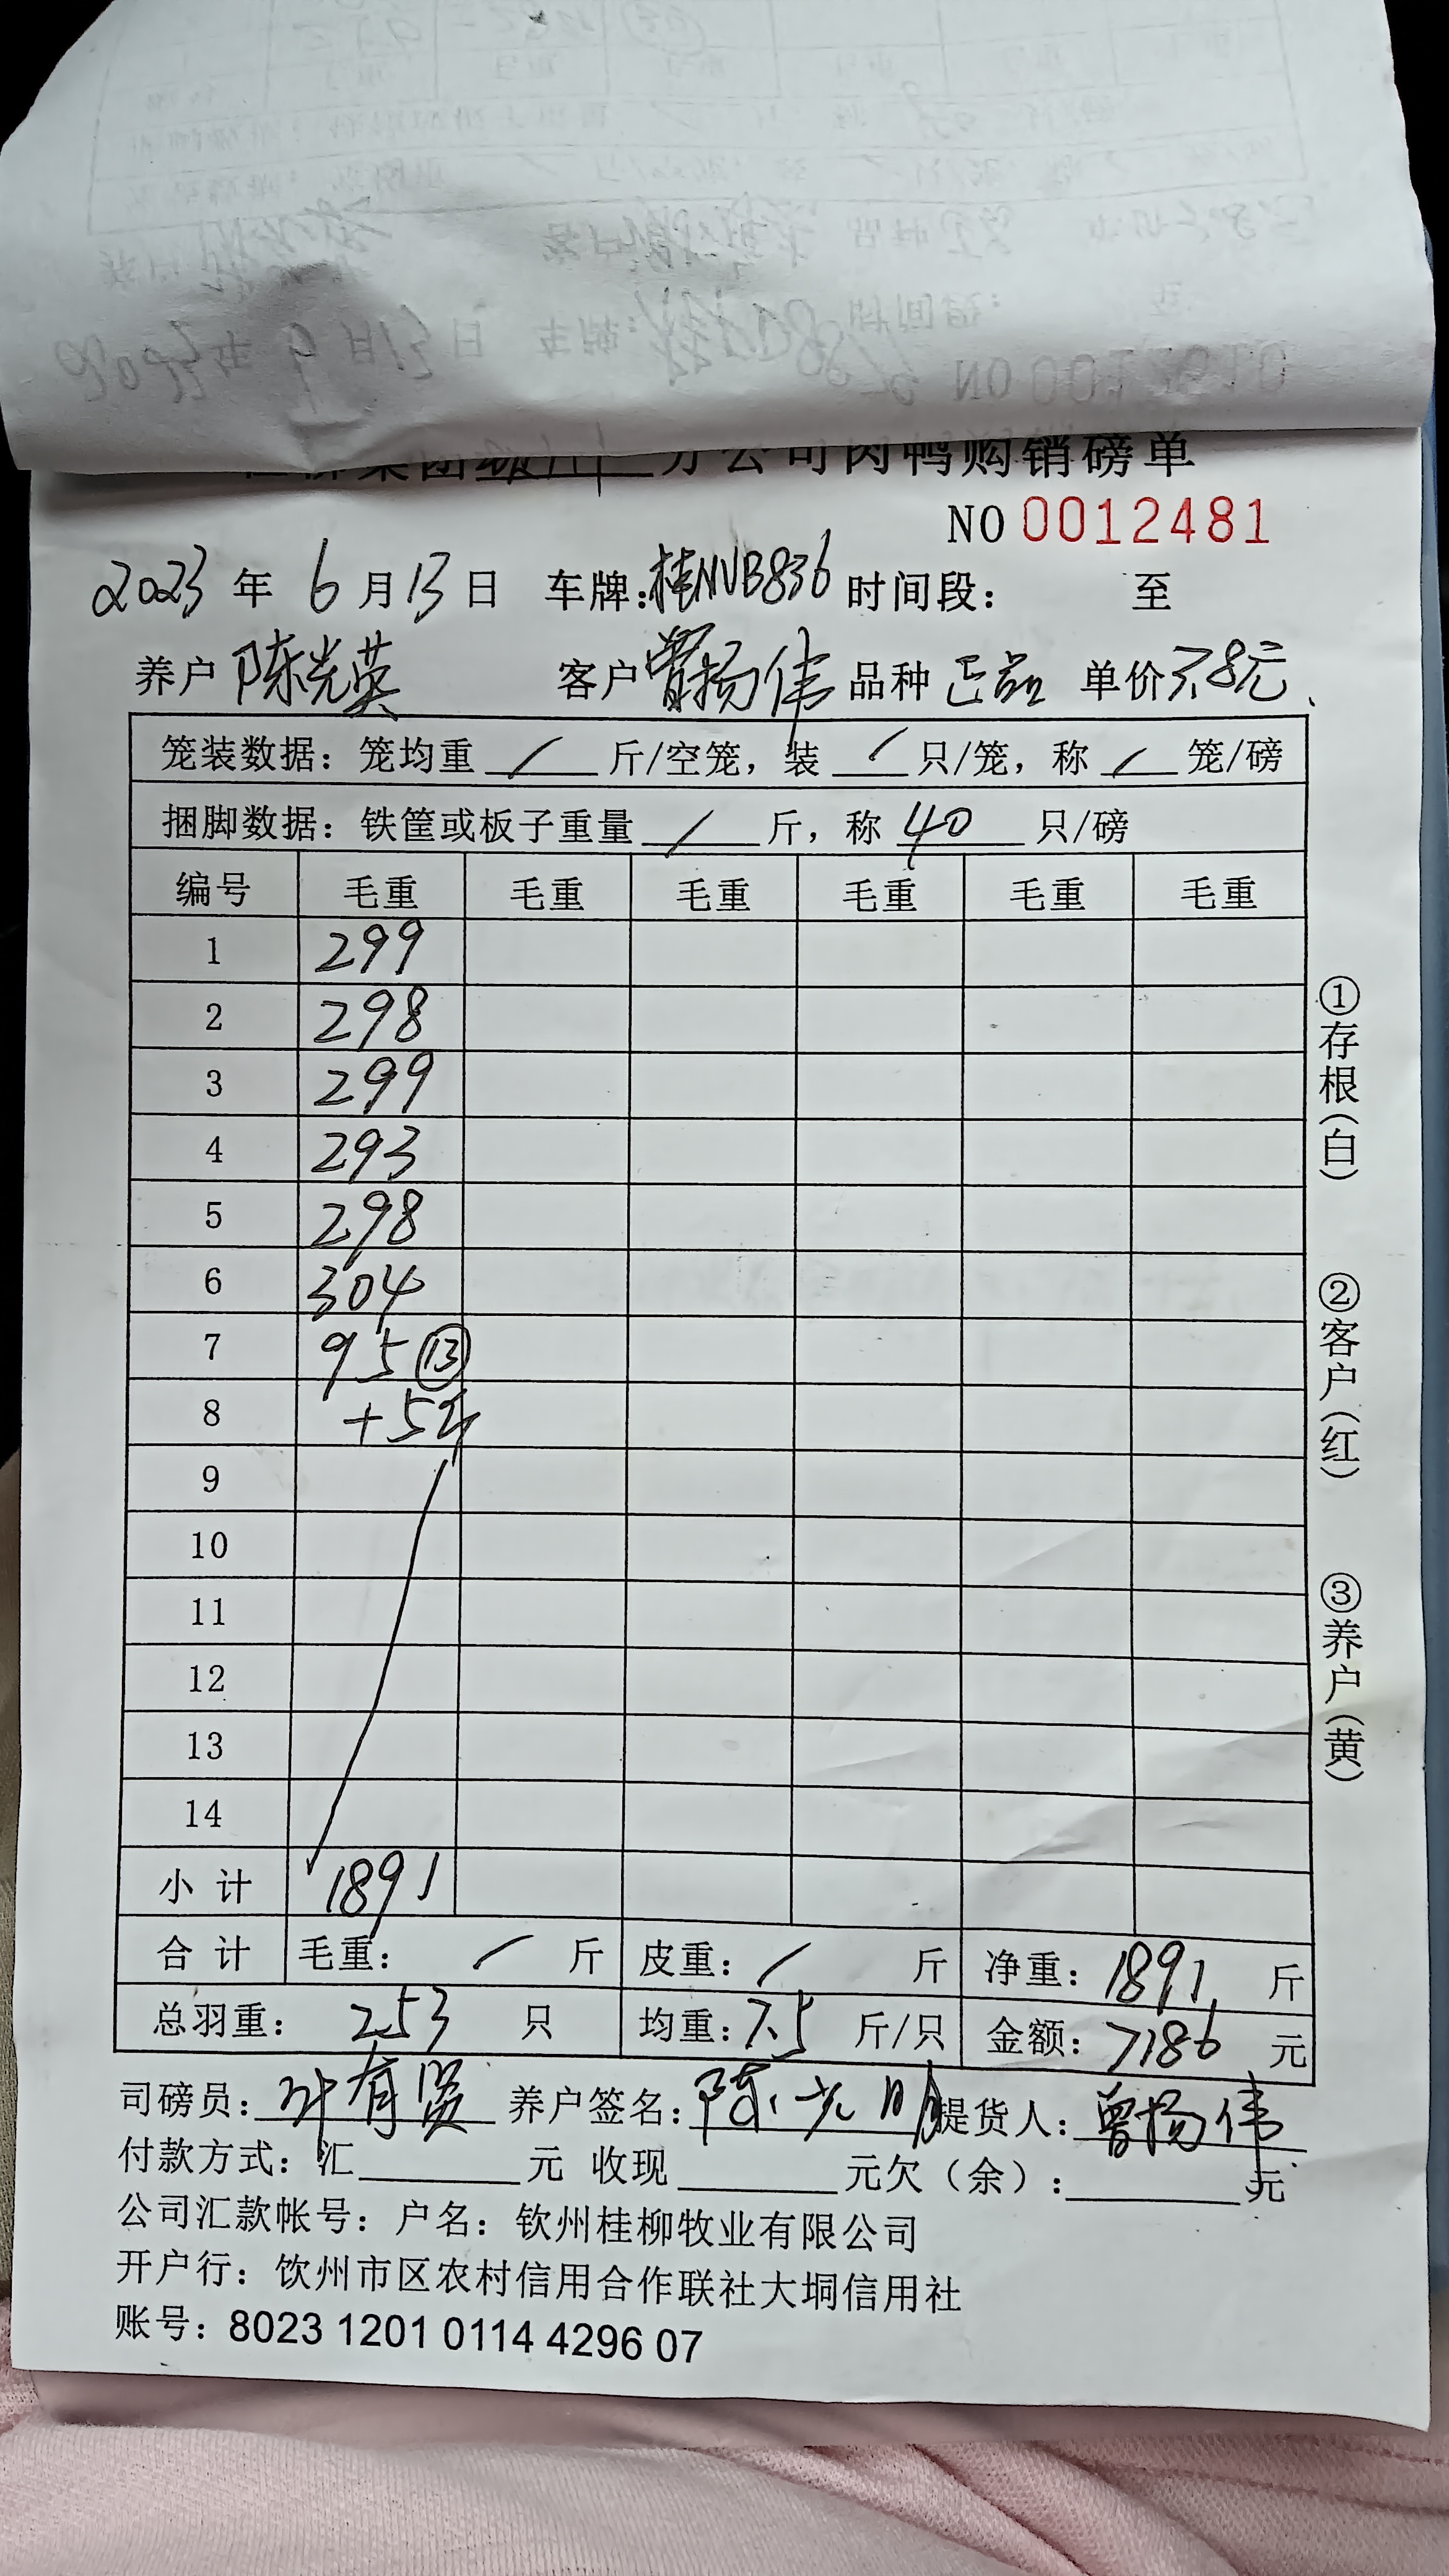 集团钦州分公司肉鸭购销磅单
NO 0012481
2023 年 6 月 13 日 车牌:桂NVB836 时间段: 至
养户 陈光英 客户 曾扬伟 品种 正品 单价 3.8元
笼装数据: 笼均重 / 斤/空笼, 装 / 只/笼, 称 / 笼/磅
捆脚数据: 铁筐或板子重量 / 斤, 称 40 只/磅
编号 毛重 毛重 毛重 毛重 毛重 毛重
1 299
2 298
3 299
4 293
5 298
6 304
7 95 ⑬
8 +5斤
9
10
11
12
13
14
小计 1891
合计 毛重: / 斤 皮重: / 斤 净重: 1891 斤
总羽重: 253 只 均重: 7.5 斤/只 金额: 7186 元
司磅员: 养户签名: 陈光明 提货人: 曾扬伟
付款方式: 汇 元 收现 元欠（余）: 元
公司汇款帐号: 户名: 钦州桂柳牧业有限公司
开户行: 饮州市区农村信用合作联社大垌信用社
账号: 8023 1201 0114 4296 07
①存根（白）
②客户（红）
③养户（黄）